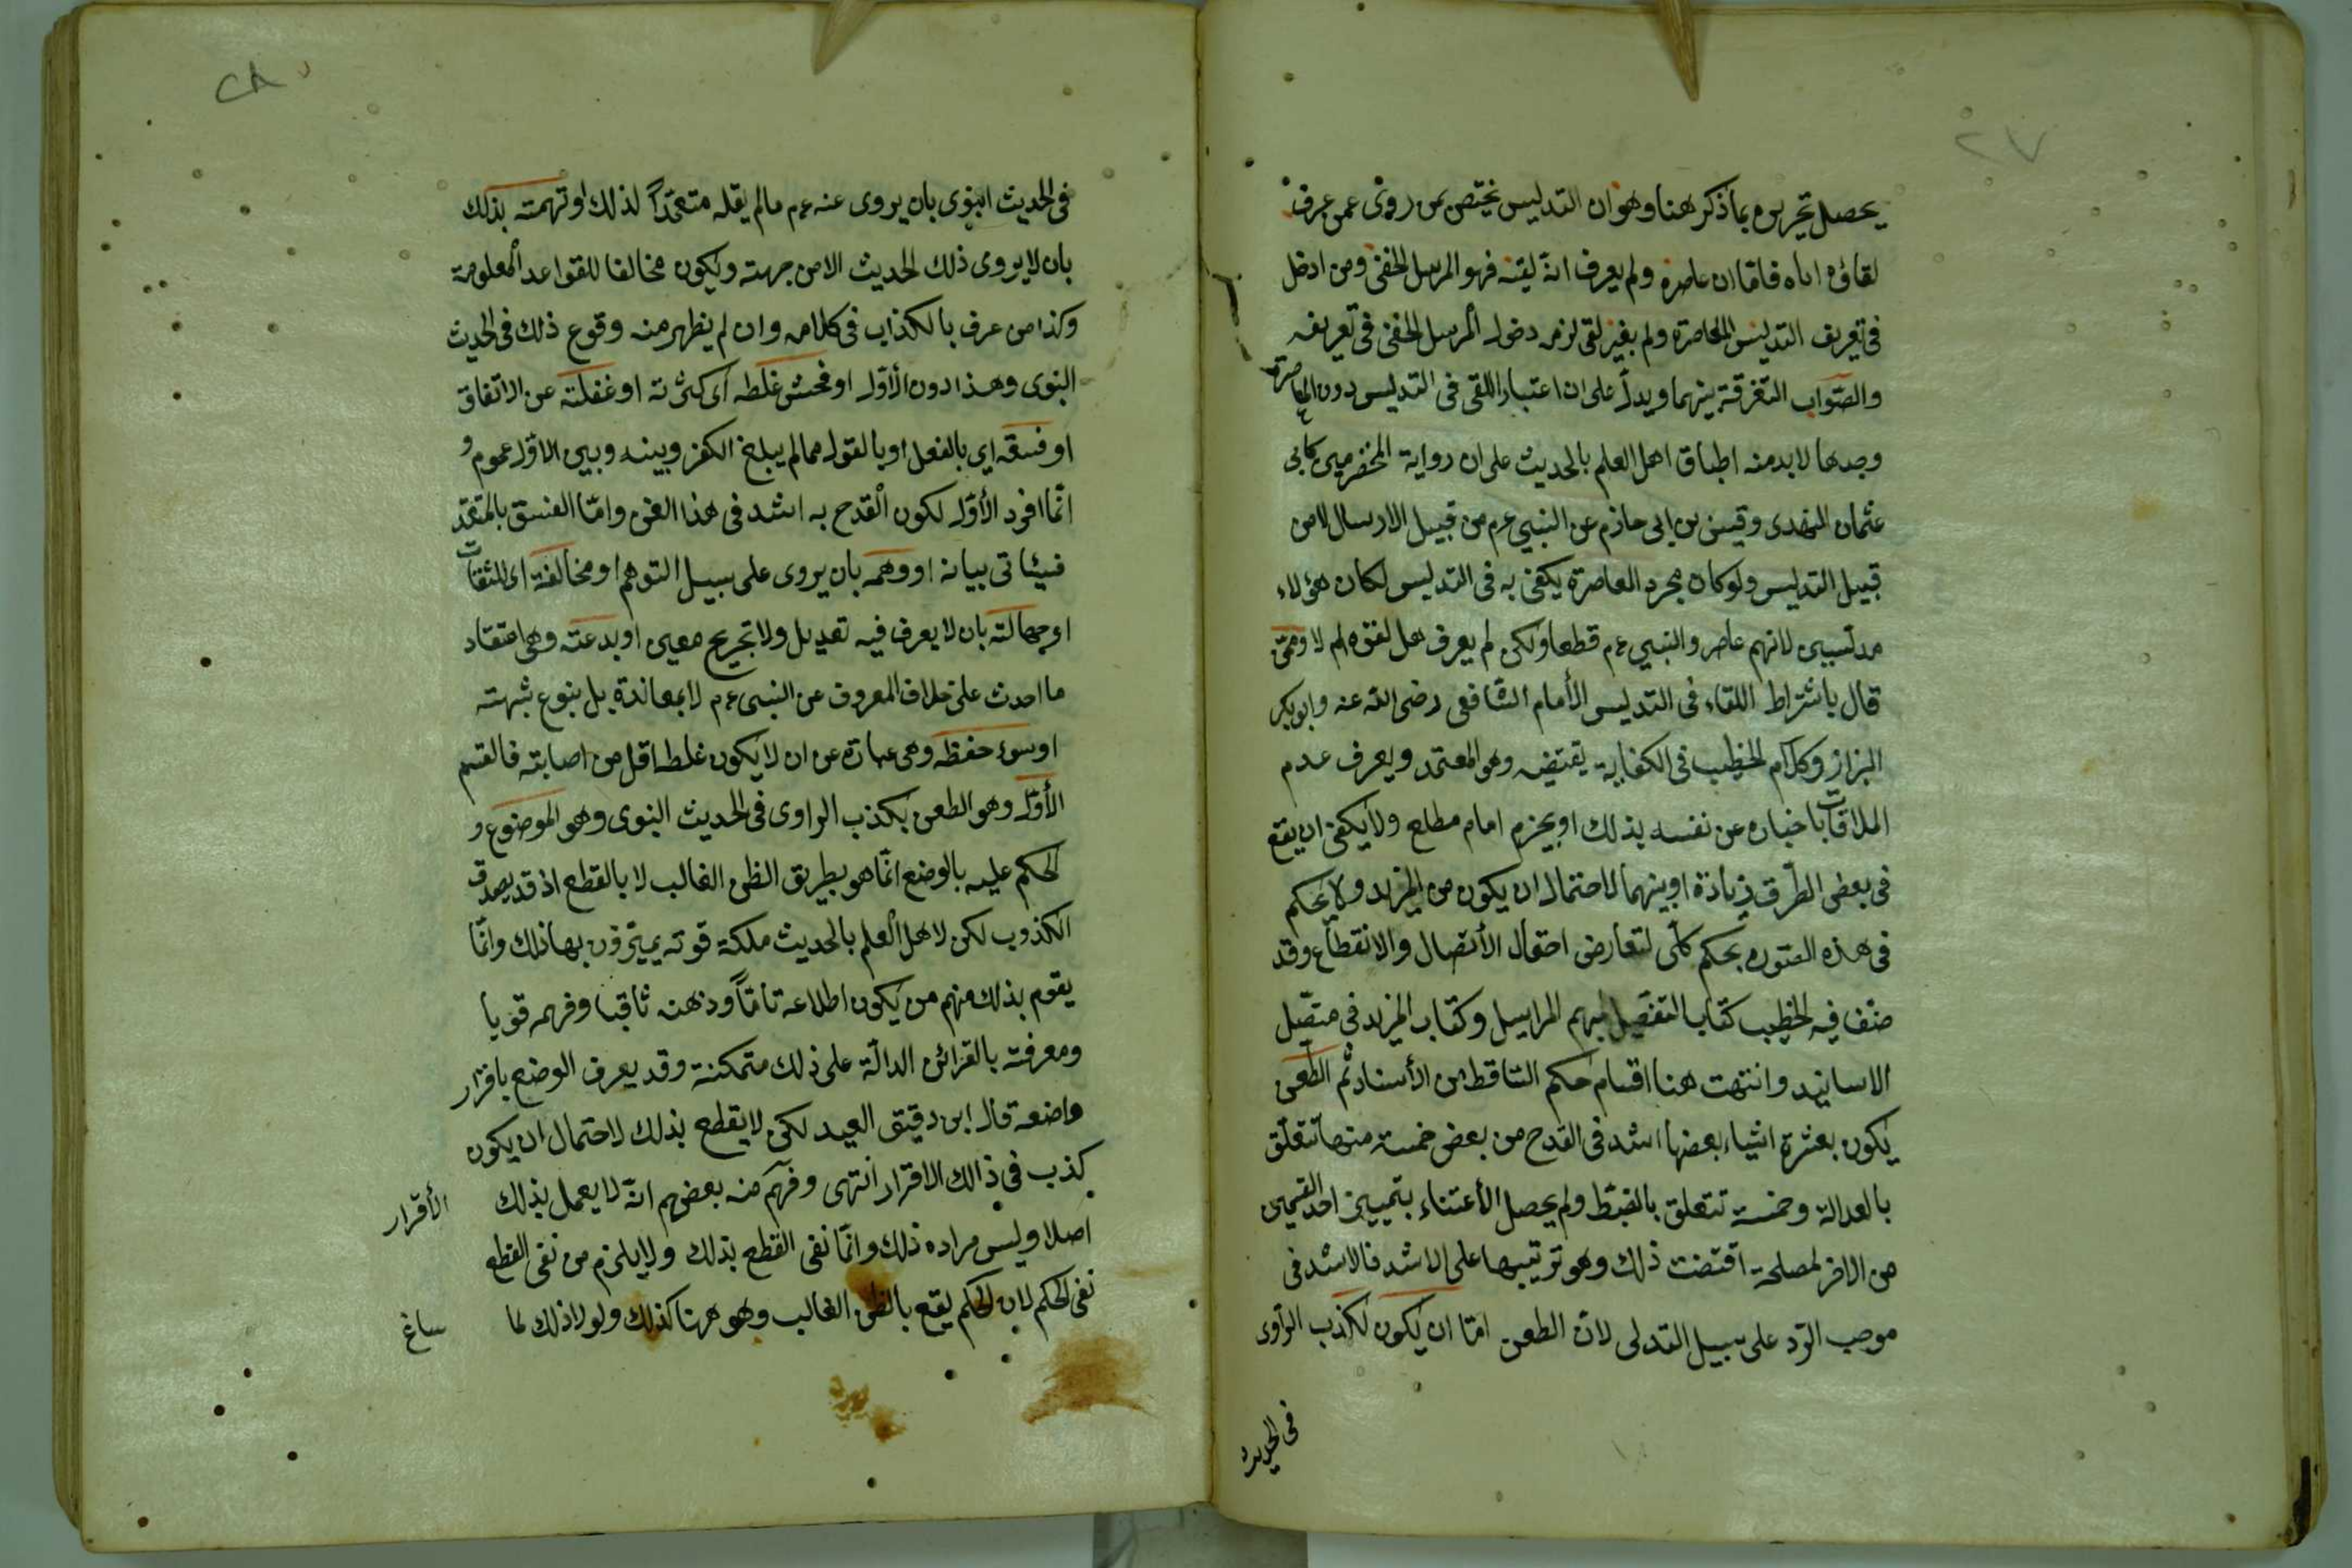 ٢٧
يحصل تحريره بما ذكر هنا وهو ان التدليس يختص بمن روى عمن عرف
لقاؤه اياه فاما ان عاصره ولم يعرف انه لقيه فهو المرسل الخفى ومن ادخل
فى تعريف التدليس المعاصرة ولم بغير لقى لزمه دخول المرسل الخفى فى تعريفه
والصواب التفرقة بينهما ويدل على ان اعتبار اللقى فى التدليس دون المعاصرة
وحدها لا بد منه اطباق اهل العلم بالحديث على ان رواية المخضرمين كابى
عثمان النهدى وقيس بن ابى حازم عن النبى عم من قبيل الارسال لا من
قبيل التدليس ولو كان مجرد المعاصرة يكفى به فى التدليس لكان هؤلاء
مدلسين لانهم عاصروا النبى عم قطعا ولكن لم يعرف هل لقوه ام لا وممن
قال باشتراط اللقاء فى التدليس الأمام الشافعى رضى الله عنه وابو بكر
البزاز وكلام الخطيب فى الكفاية يقتضيه وهو المعتمد ويعرف عدم
الملاقات باخباره عن نفسه بذلك او بجزم امام مطلع ولا يكفى ان يقع
فى بعض الطرق زيادة او بينهما لاحتمال ان يكون من المزيد ولا يحكم
فى هذه الصورة بحكم كلى لتعارض احتمال الأتصال والانقطاع وقد
صنف فيه الخطيب كتاب التفصيل لمبهم المراسيل وكتاب المزيد فى متصل
الاسانيد وانتهت هنا اقسام حكم الساقط من الأسناد ثم الطعن
يكون بعشرة اشياء بعضها اشد فى القدح من بعض خمسة منها تتعلق
بالعدالة وخمسة تتعلق بالضبط ولم يحصل الأعتناء بتمييز احد القسمين
من الاخر لمصلحة اقتضت ذلك وهو ترتيبها على الاشد فالاشد فى
موجب الرد على سبيل التدلى لان الطعن اما ان يكون لكذب الراوى
فى الحديث
٢٨
فى الحديث النبوى بان يروى عنه عم مالم يقله متعمداً لذلك او تهمته بذلك
بان لا يروى ذلك الحديث الا من جهته ويكون مخالفا للقواعد المعلومة
وكذا من عرف بالكذب فى كلامه وان لم يظهر منه وقوع ذلك فى الحديث
النبوى وهذا دون الأول او فحش غلطه اى كثرته او غفلته عن الاتقان
او فسقه اي بالفعل او بالقول مما لم يبلغ الكفر وبينه وبين الاول عموم و
انما افرد الأول لكون القدح به اشد فى هذا الفن واما الفسق بالمعتقد
فسياتى بيانه او وهمه بان يروى على سبيل التوهم او مخالفته اى للثقات
او جهالته بان لا يعرف فيه تعديل ولا تجريح معين او بدعته وهى اعتقاد
ما احدث على خلاف المعروف عن النبى عم لا بمعاندة بل بنوع شبهته
او سوء حفظه وهى عبارة عن ان لا يكون غلطه اقل من اصابته فالقسم
الأول وهو الطعن بكذب الراوى فى الحديث النبوى وهو الموضوع و
الحكم عليه بالوضع انما هو بطريق الظن الغالب لا بالقطع اذ قد يصدق
الكذوب لكن لاهل العلم بالحديث ملكة قوته يميزون بها ذلك وانما
يقوم بذلك منهم من يكون اطلاعه تاماً وذهنه ثاقبا وفهمه قويا
ومعرفته بالقرائن الدالة على ذلك متمكنة وقد يعرف الوضع باقرار
واضعه قال ابن دقيق العيد لكن لا يقطع بذلك لاحتمال ان يكون
كذب فى ذالك الاقرار انتهى وفهم منه بعضهم انه لا يعمل بذلك الأقرار
اصلا وليس مراده ذلك وانما نفى القطع بذلك ولا يلزم من نفى القطع
نفى الحكم لان الحكم يقع بالظن الغالب وهو هنا كذلك ولولا ذلك لما ساغ